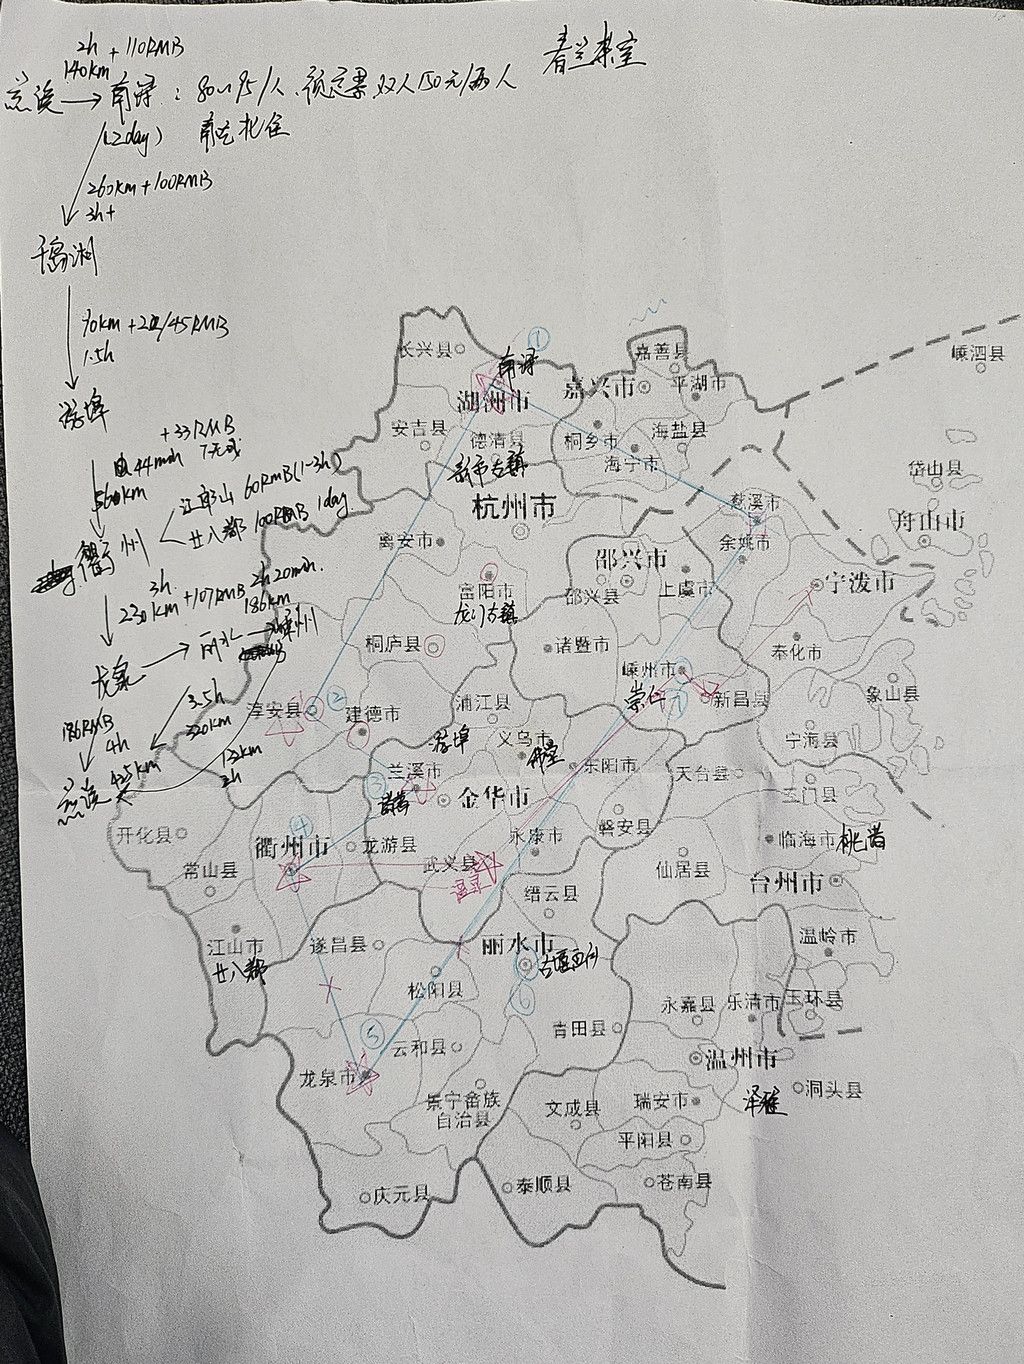 2h + 110RMB
140km
慈溪 → 南浔：80~95/人、预定票 双人150元/两人
春兰茶室
(1.2day)
260km+100RMB
3h+
千岛湖
90km
1.5h
游埠
+33RMB
44min
衢州
江郎山 60RMB(1-3h)
廿八都 100RMB 1day
3h
230km+107RMB
2h20min.
186km
龙泉 → 丽水 → 嵊州
186RMB
4h
425km
慈溪
3.5h
320km
132km
2h
①
长兴县
南浔
嘉善县
嵊泗县
湖洲市
嘉兴市
平湖市
安吉县
德清县
桐乡市
海盐县
新市古镇
海宁市
岱山县
杭州市
慈溪市
舟山市
离安市
余姚市
邵兴市
富阳市
邵兴县
上虞市
宁泼市
龙门古镇
桐庐县
诸暨市
奉化市
嵊州市
崇仁
⑦
新昌县
象山县
淳安县
②
建德市
浦江县
宁海县
游埠
义乌市
佛堂
东阳市
天台县
兰溪市
③
金华市
三门县
诸葛
开化县
④
衢州市
龙游县
永康市
磐安县
临海市
桃渚
常山县
武义县
仙居县
台州市
缙云县
江山市
遂昌县
丽水市
温岭市
廿八都
古堰画乡
松阳县
⑥
永嘉县
乐清市
玉环县
⑤
云和县
青田县
温州市
龙泉市
洞头县
景宁畲族
自治县
文成县
瑞安市
泽雅
平阳县
庆元县
泰顺县
苍南县